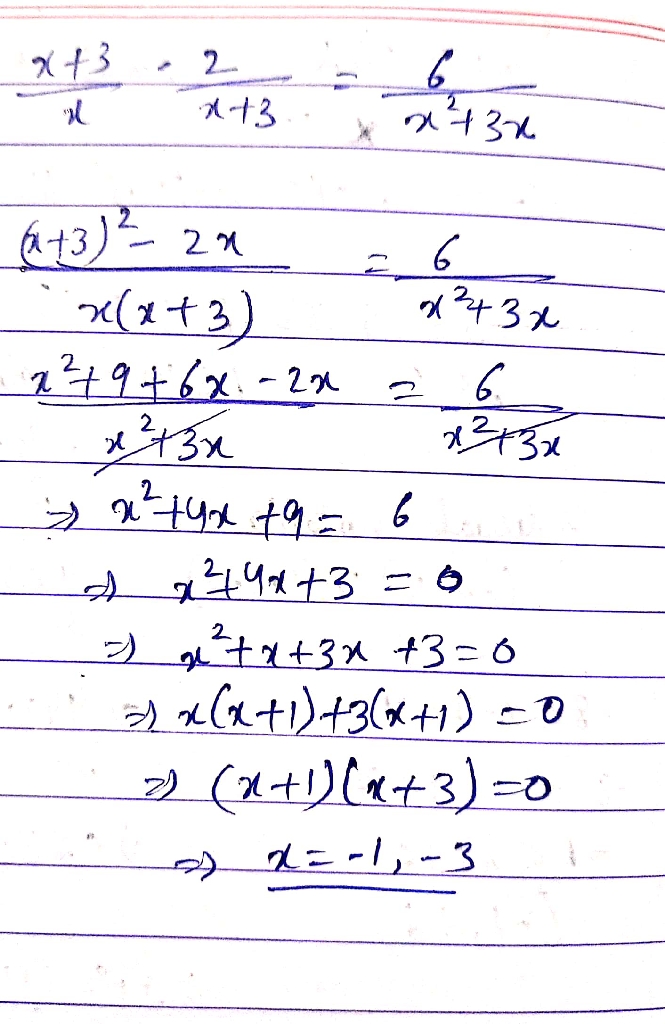 x+3/x - 2/x+3 = 6/x²+3x
(x+3)² - 2x/x(x+3) = 6/x²+3x
x²+9+6x-2x/x²+3x = 6/x²+3x
⇒ x²+4x+9 = 6
⇒ x²+4x+3 = 0
⇒ x²+x+3x+3=0
⇒ x(x+1)+3(x+1) = 0
⇒ (x+1)(x+3)=0
⇒ x=-1,-3